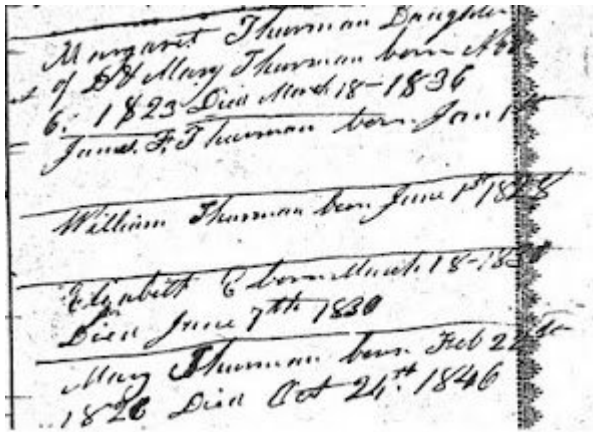 Margaret Thurman Daughter
of D & Mary Thurman born Nov
6, 1823 Died March 18-1836
James F. Thurman born Jan 1
William Thurman born June 1st 1828
Elizabeth E born March 18-1830
Died June 7th 1830
Mary Thurman born Feb 22
1826 Died Oct 24th 1846